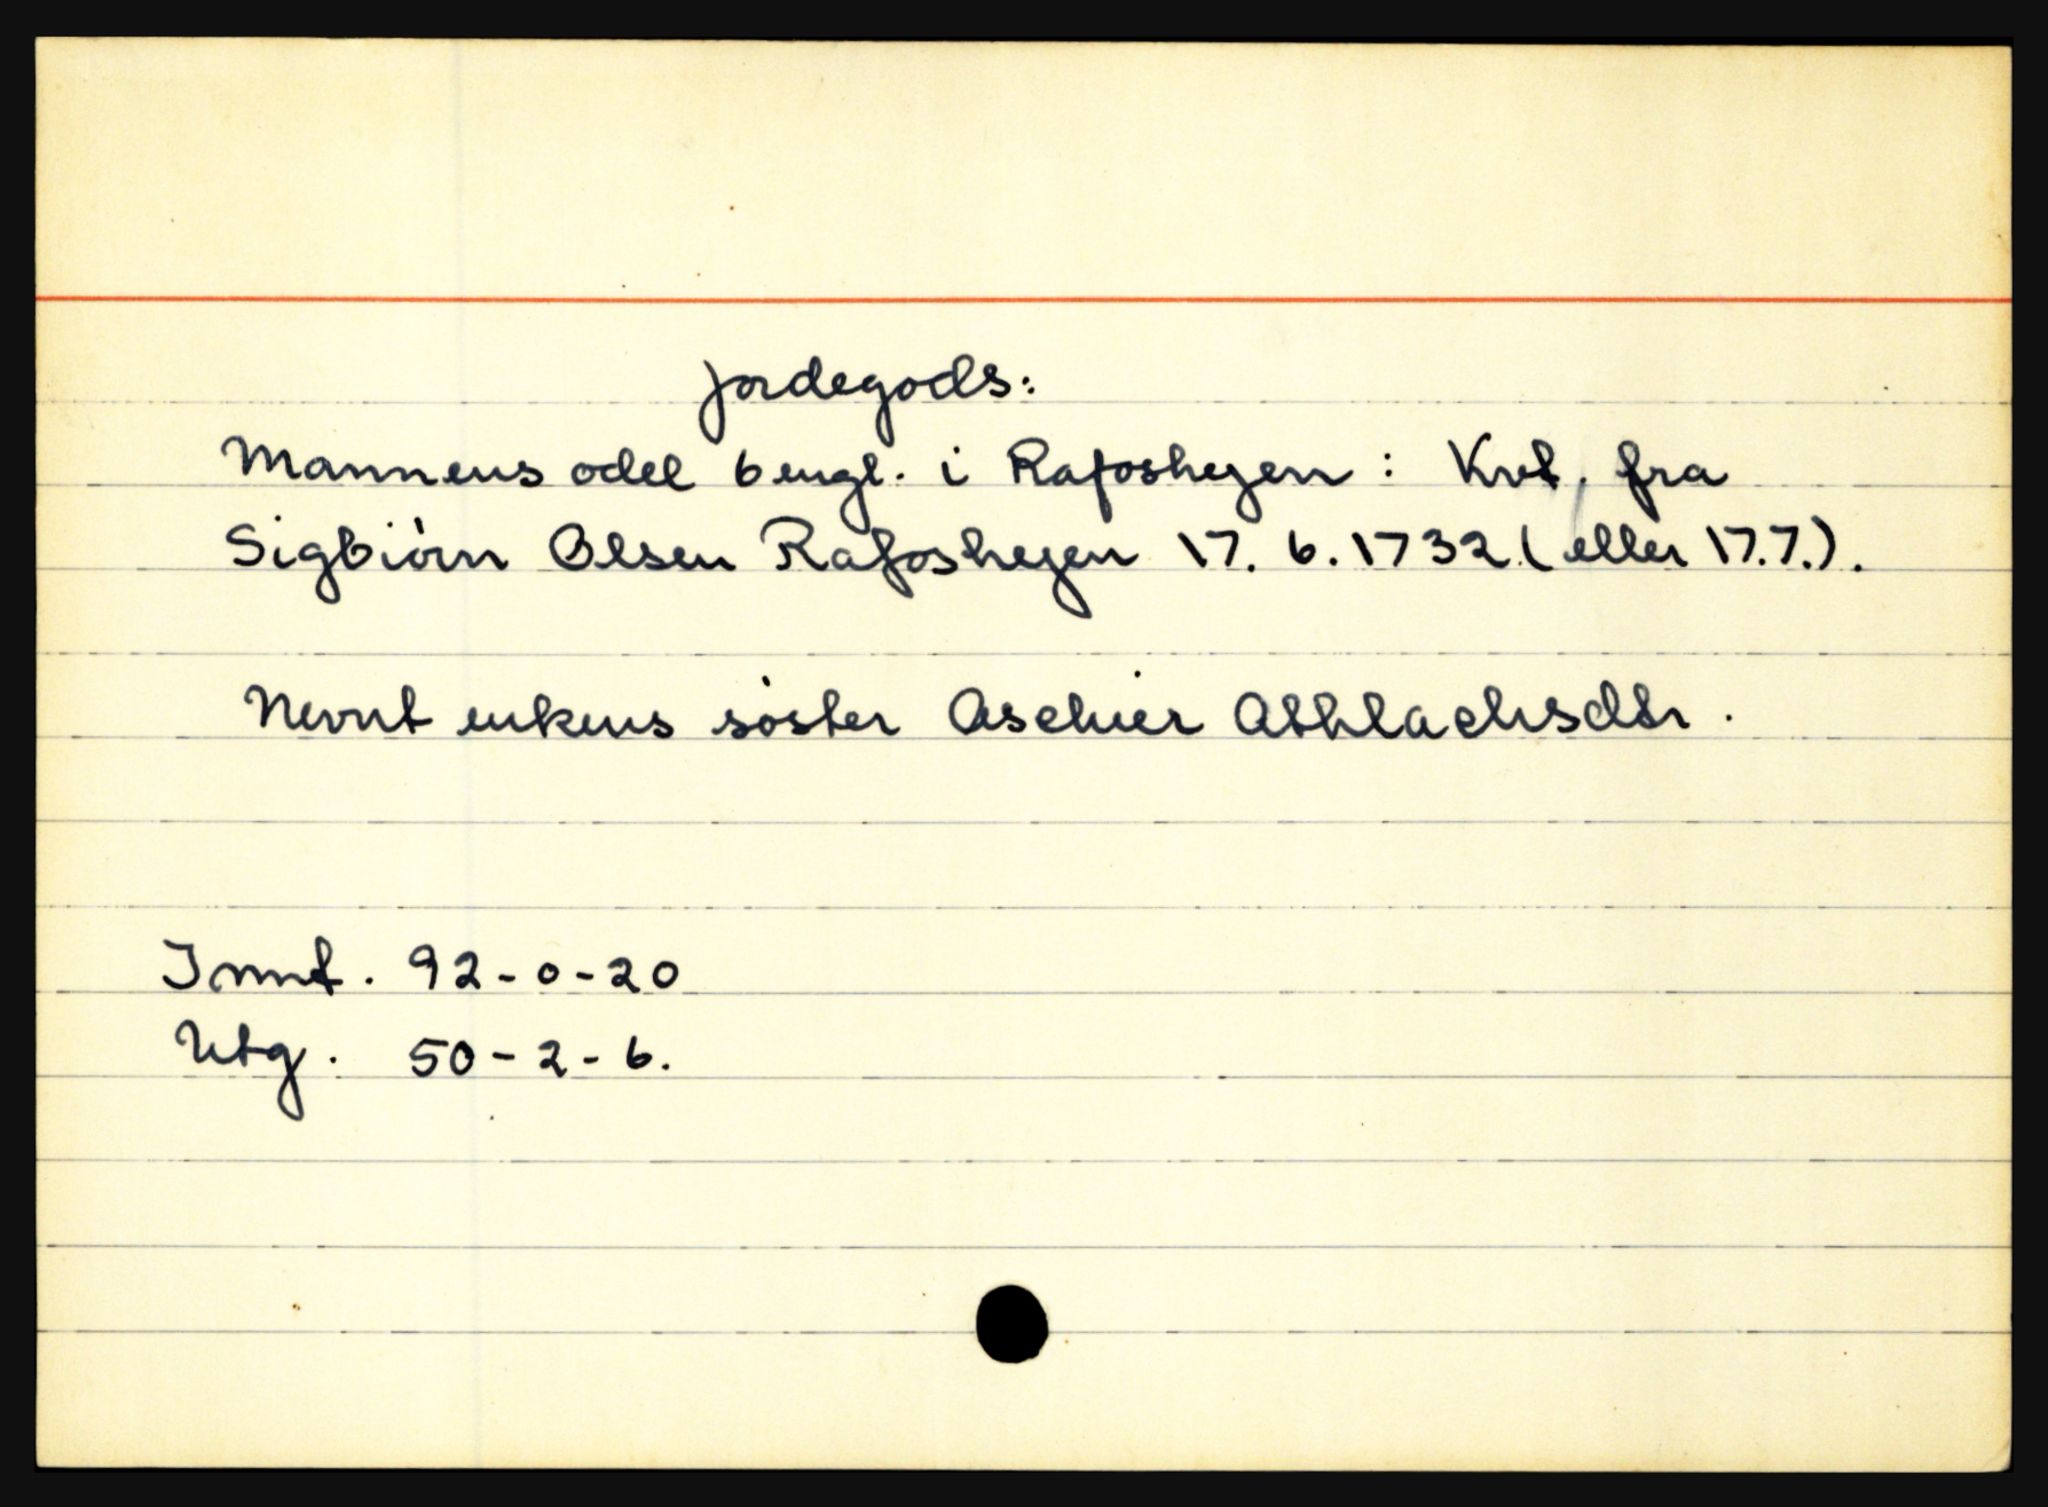 Jordegods:
Mannens odel 6 engl. i Rafoshejen : Kvt. fra
Sigbiørn Olsen Rafoshejen 17. 6. 1732 (eller 17.7.).
Nevnt enkens søster Aschier Athlachsdtr.
Innt. 92-0-20
Utg. 50-2-6.